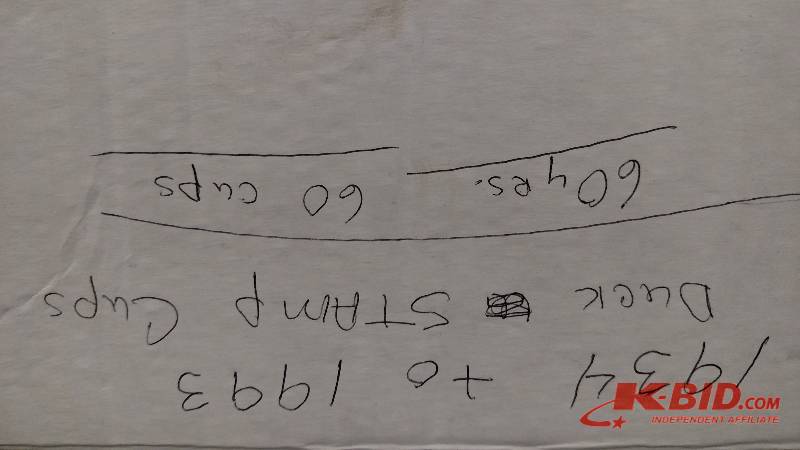 1934 to 1993
Duck STAmp Cups
60 yRs. 60 cups
K-BID.COM
INDEPENDENT AFFILIATE